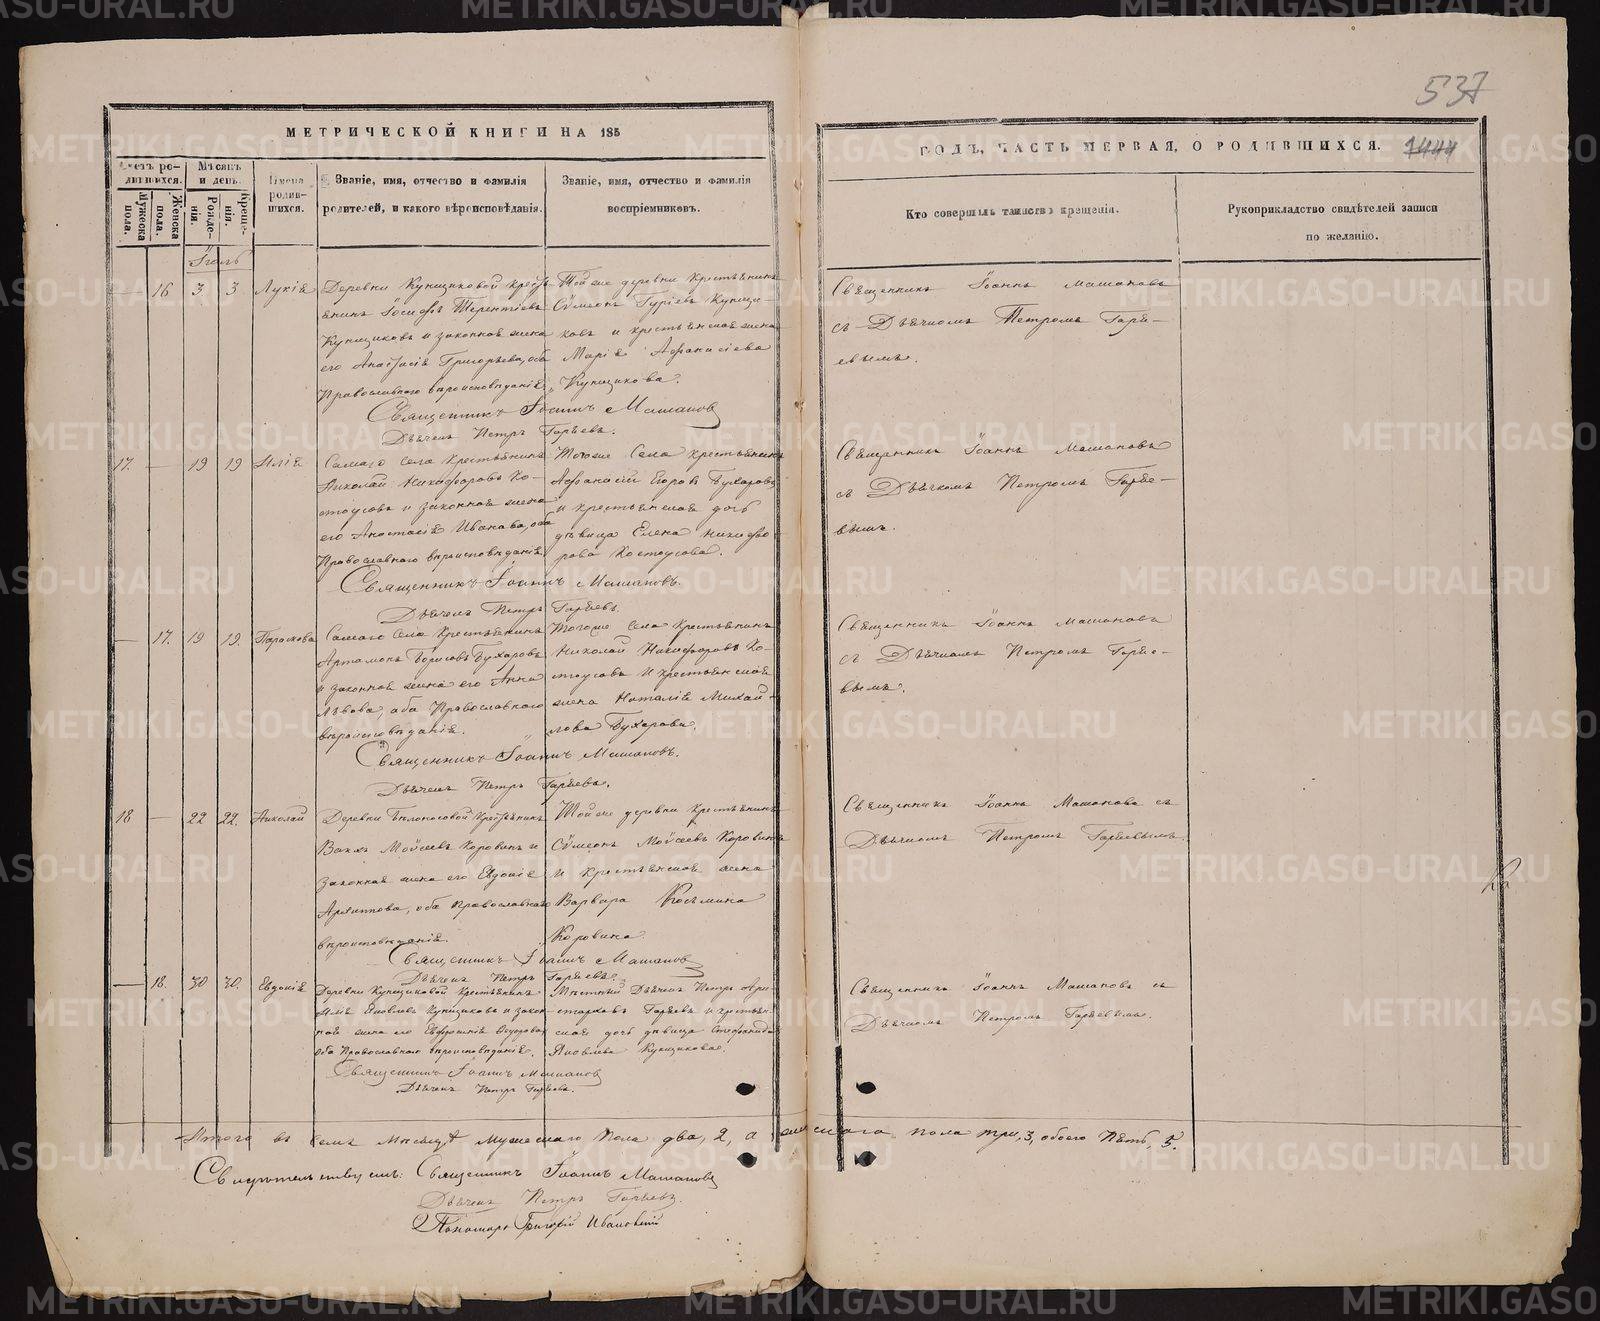 537
МЕТРИЧЕСКОЙ КНИГИ НА 185
ГОДЪ, ЧАСТЬ ПЕРВАЯ, О РОДИВШИХСЯ. 1444
Счетъ ро-
дившихся.
Мѣсяцъ
и день.
Имена
родив-
шихся.
Званіе, имя, отчество и фамилія
родителей, и какого вѣроисповѣданія.
Званіе, имя, отчество и фамилія
воспріемниковъ.
Кто совершилъ таинство крещенія.
Рукоприкладство свидѣтелей записи
по желанію.
Мужеска
пола.
Женска
пола.
Рожде-
нія.
Креще-
нія.
Іюль
16 3 3 Лукія
Деревни Купщиковой кресть-
янинъ Іосифъ Терентіевъ
Купщиковъ и законная жена
его Анастасія Григорьева, оба
Православнаго вѣроисповѣданія.
Той же деревни крестьянинъ
Сѵмеонъ Гуріевъ Купщи-
ковъ и крестьянская жена
Марія Афанасіева
Купщикова.
Священникъ Іоаннъ Машановъ
съ Дьячкомъ Петромъ Горя-
евымъ.
Священникъ Іоаннъ Машановъ
Дьячекъ Петръ
17. — 19 19 Илія
Самаго села крестьянинъ
Николай Никифоровъ Ко-
стоусовъ и законная жена
его Анастасія Иванова, оба
Православнаго вѣроисповѣданія.
Тогоже села крестьянинъ
Афанасій Егоровъ Бухаровъ
и крестьянская дочь
дѣвица Елена Никифо-
рова Костоусова.
Священникъ Іоаннъ Машановъ
съ Дьячкомъ Петромъ
вымъ.
Священникъ Іоаннъ Машановъ.
Дьячекъ Петръ
— 17. 19 19. Параскова
Самаго села крестьянинъ
Артамонъ Борисовъ Бухаровъ
и законная жена его Анна
Львова, оба Православнаго
вѣроисповѣданія.
Тогоже села крестьянинъ
Николай Никифоровъ Ко-
стоусовъ и крестьянская
жена Наталія Михай-
лова Бухарова.
Священникъ Іоаннъ Машановъ
съ Дьячкомъ Петромъ
вымъ.
Священникъ Іоаннъ Машановъ.
Дьячекъ Петръ
18 — 22 22. Николай
Деревни Бѣлоносовой крестьянинъ
Моѵсеевъ Коровинъ и
законная жена его Евдокія
Архиппова, оба православнаго
вѣроисповѣданія.
Той же деревни крестьянинъ
Сѵмеонъ Моѵсеевъ Коровинъ
и крестьянская жена
Варвара Косьмина
Коровина.
Священникъ Іоаннъ Машановъ съ
Дьячкомъ Петромъ
Священникъ Іоаннъ Машановъ
Дьячекъ Петръ
— 18. 30 30. Евдокія
Деревни Купщиковой крестьянинъ
Илья Яковлевъ Купщиковъ и закон-
ная жена его Евфросинія Ѳедорова
оба Православнаго вѣроисповѣданія.
Мѣстный Дьячекъ Петръ Ари-
старховъ и крестьян-
ская дочь дѣвица Стефанида
Яковлева Купщикова.
Священникъ Іоаннъ Машановъ съ
Дьячкомъ Петромъ
Священникъ Іоаннъ Машановъ
Дьячекъ Петръ
Итого въ семъ мѣсяцѣ мужескаго пола два, 2, а женскаго пола три, 3, обоего пять, 5.
Свидѣтельствуемъ: Священникъ Іоаннъ Машановъ
Дьячекъ Петръ
Пономарь Григорій Ивановскій
METRIKI.GASO-URAL.RU